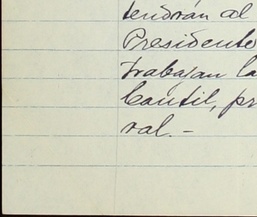 tendrán al
Presidente
trabajan la
Cantil, pr
ral.-